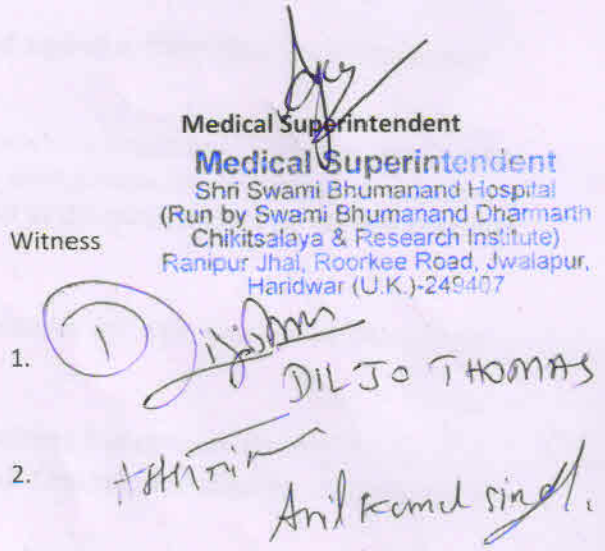 Medical Superintendent
Medical Superintendent
Shri Swami Bhumanand Hospital
(Run by Swami Bhumanand Dharmarth
Chikitsalaya & Research Institute)
Ranipur Jhal, Roorkee Road, Jwalapur,
Haridwar (U.K.)-249407
Witness
1. 1
DILJO THOMAS
2.
Anil Kumal Singh.